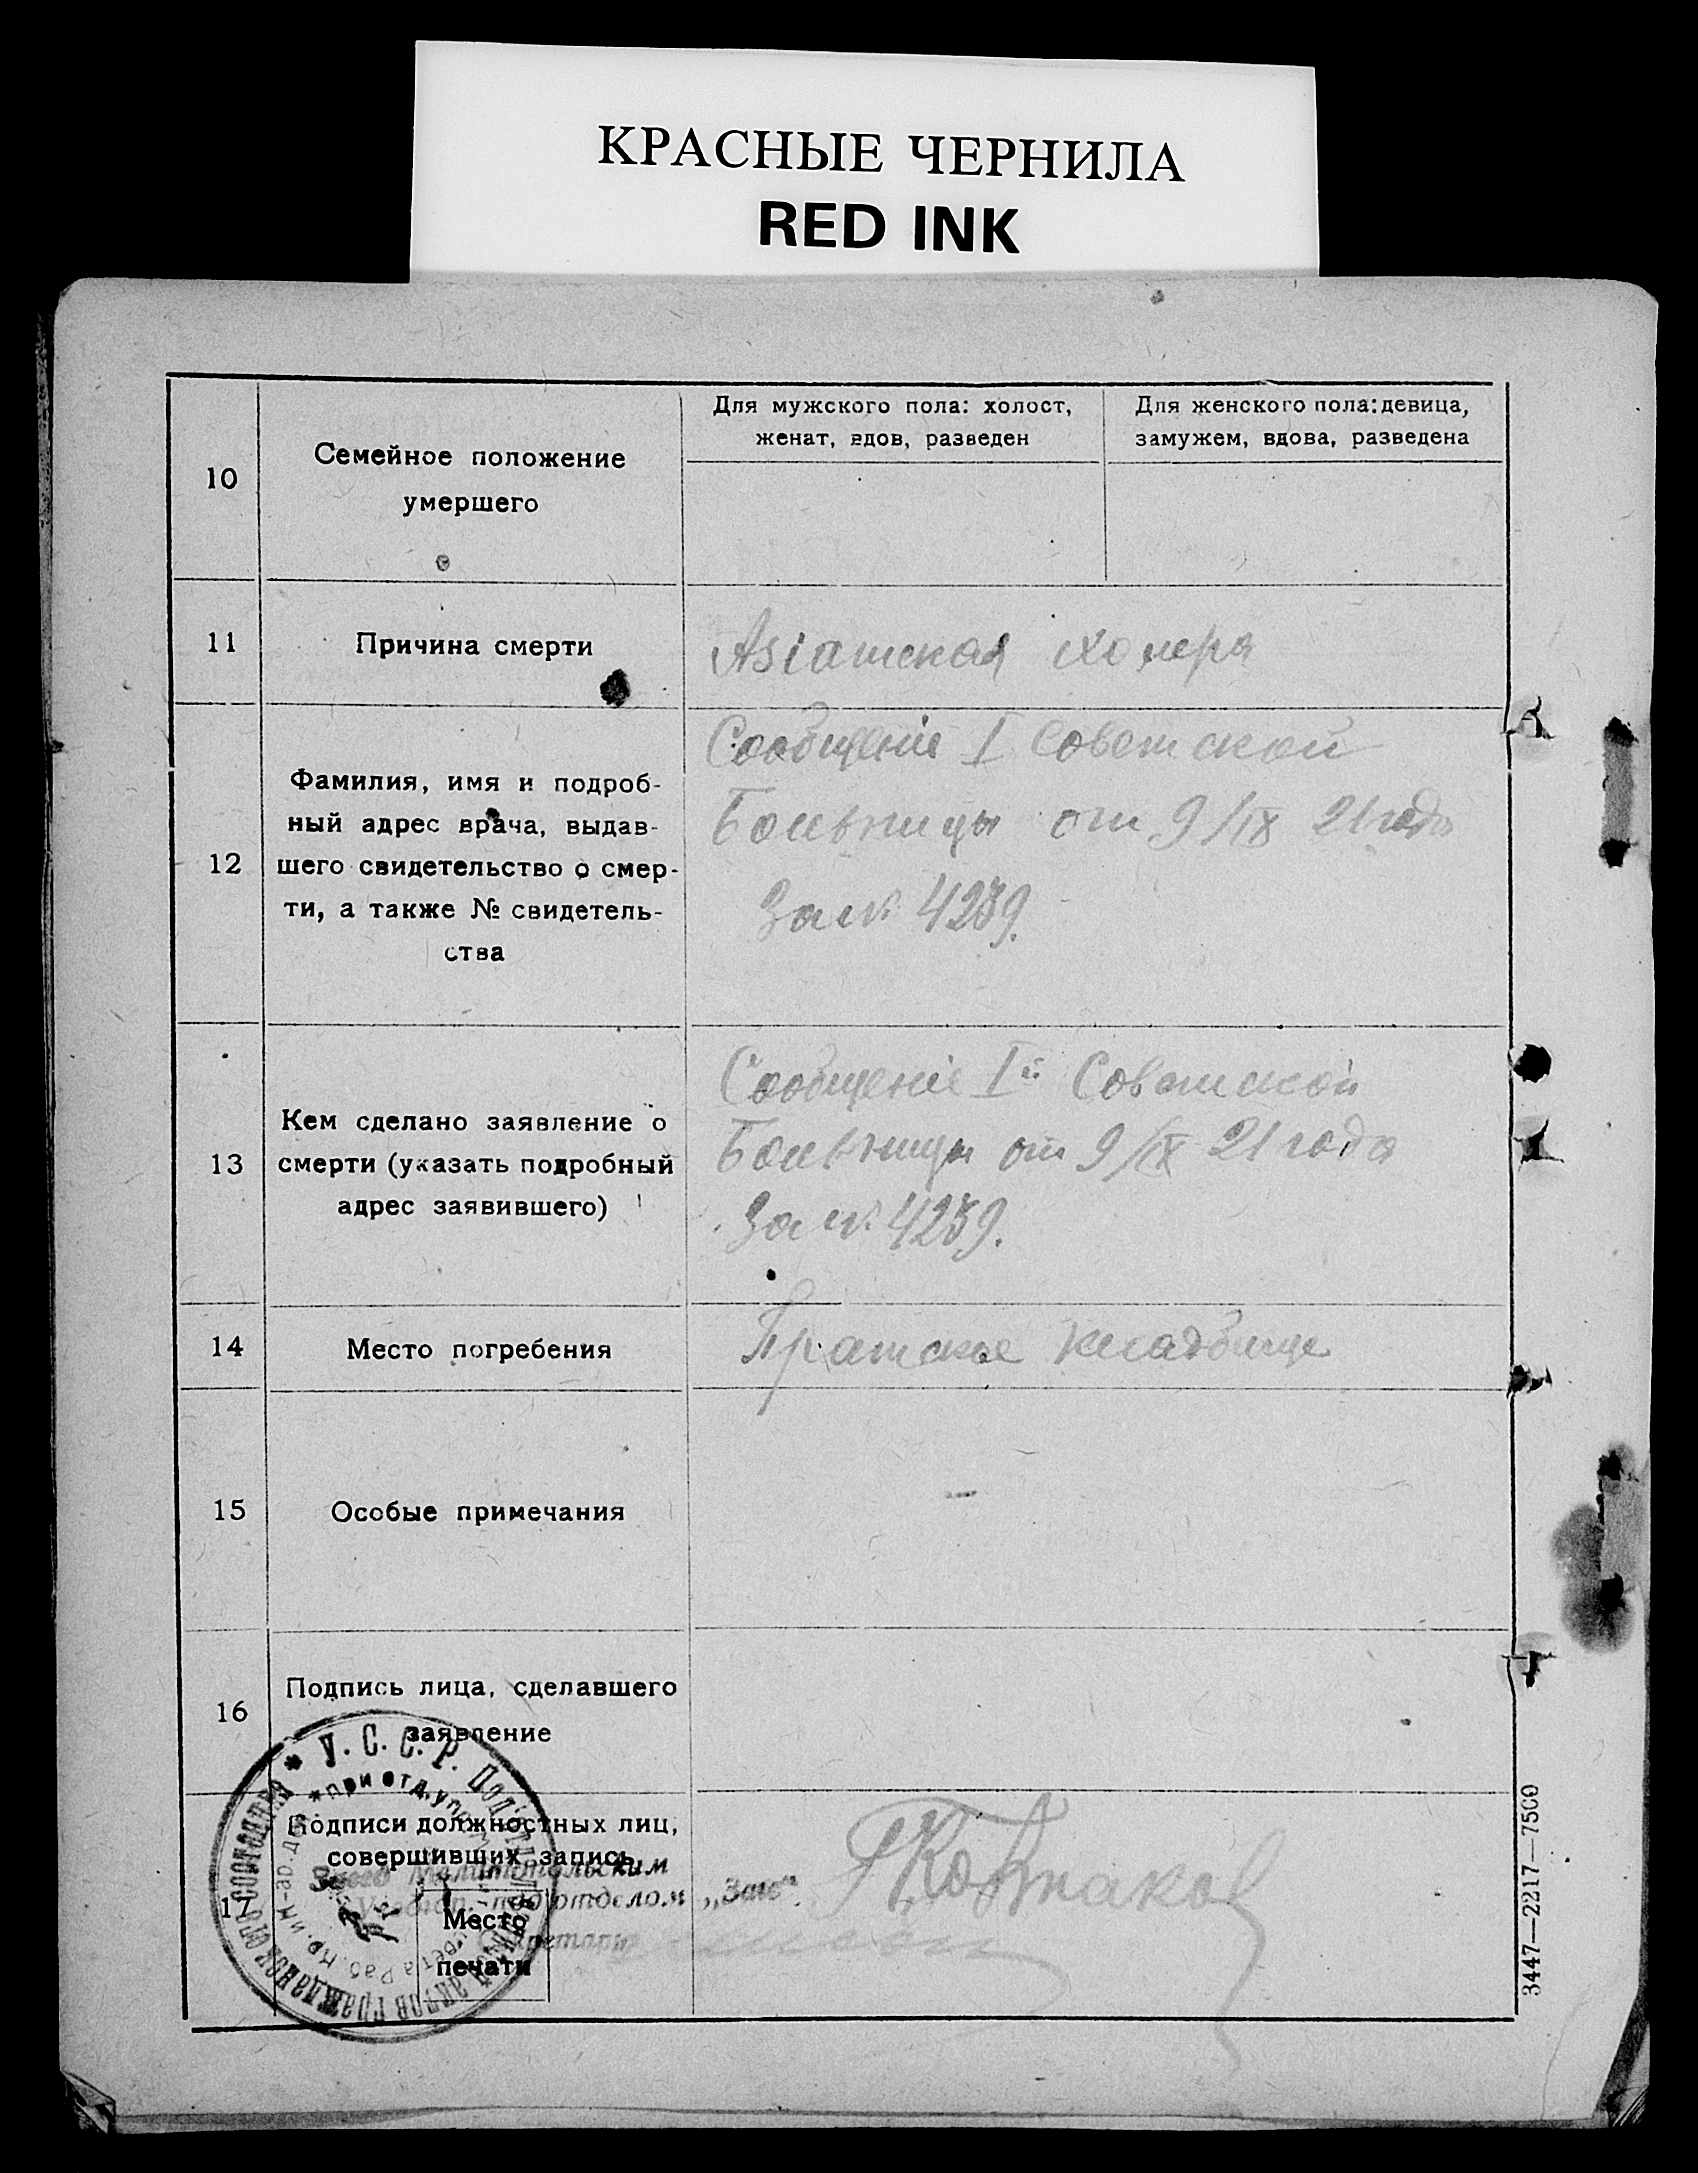 КРАСНЫЕ ЧЕРНИЛА
RED INK
10
Семейное положение
умершего
Для мужского пола: холост,
женат, вдов, разведен
Для женского пола: девица,
замужем, вдова, разведена
11
Причина смерти
Asiатская холера
12
Фамилия, имя и подроб-
ный адрес врача, выдав-
шего свидетельство о смер-
ти, а также № свидетель-
ства
Сообщенiе I Советской
Больницы от 9/IX 21 года
За № 4289.
13
Кем сделано заявление о
смерти (указать подробный
адрес заявившего)
Сообщенiе Iй Советской
Больницы от 9/IX 21 года
За № 4289.
14
Место погребения
Братское кладбище
15
Особые примечания
16
Подпись лица, сделавшего
заявление
17
Подписи должностных лиц,
совершивших запись
подотделом „Загс“
Секретарь
Место
печати
У. С. С. Р. Под'отдел
актов гражданского состояния
при отд. упр.
3447—2217—7500